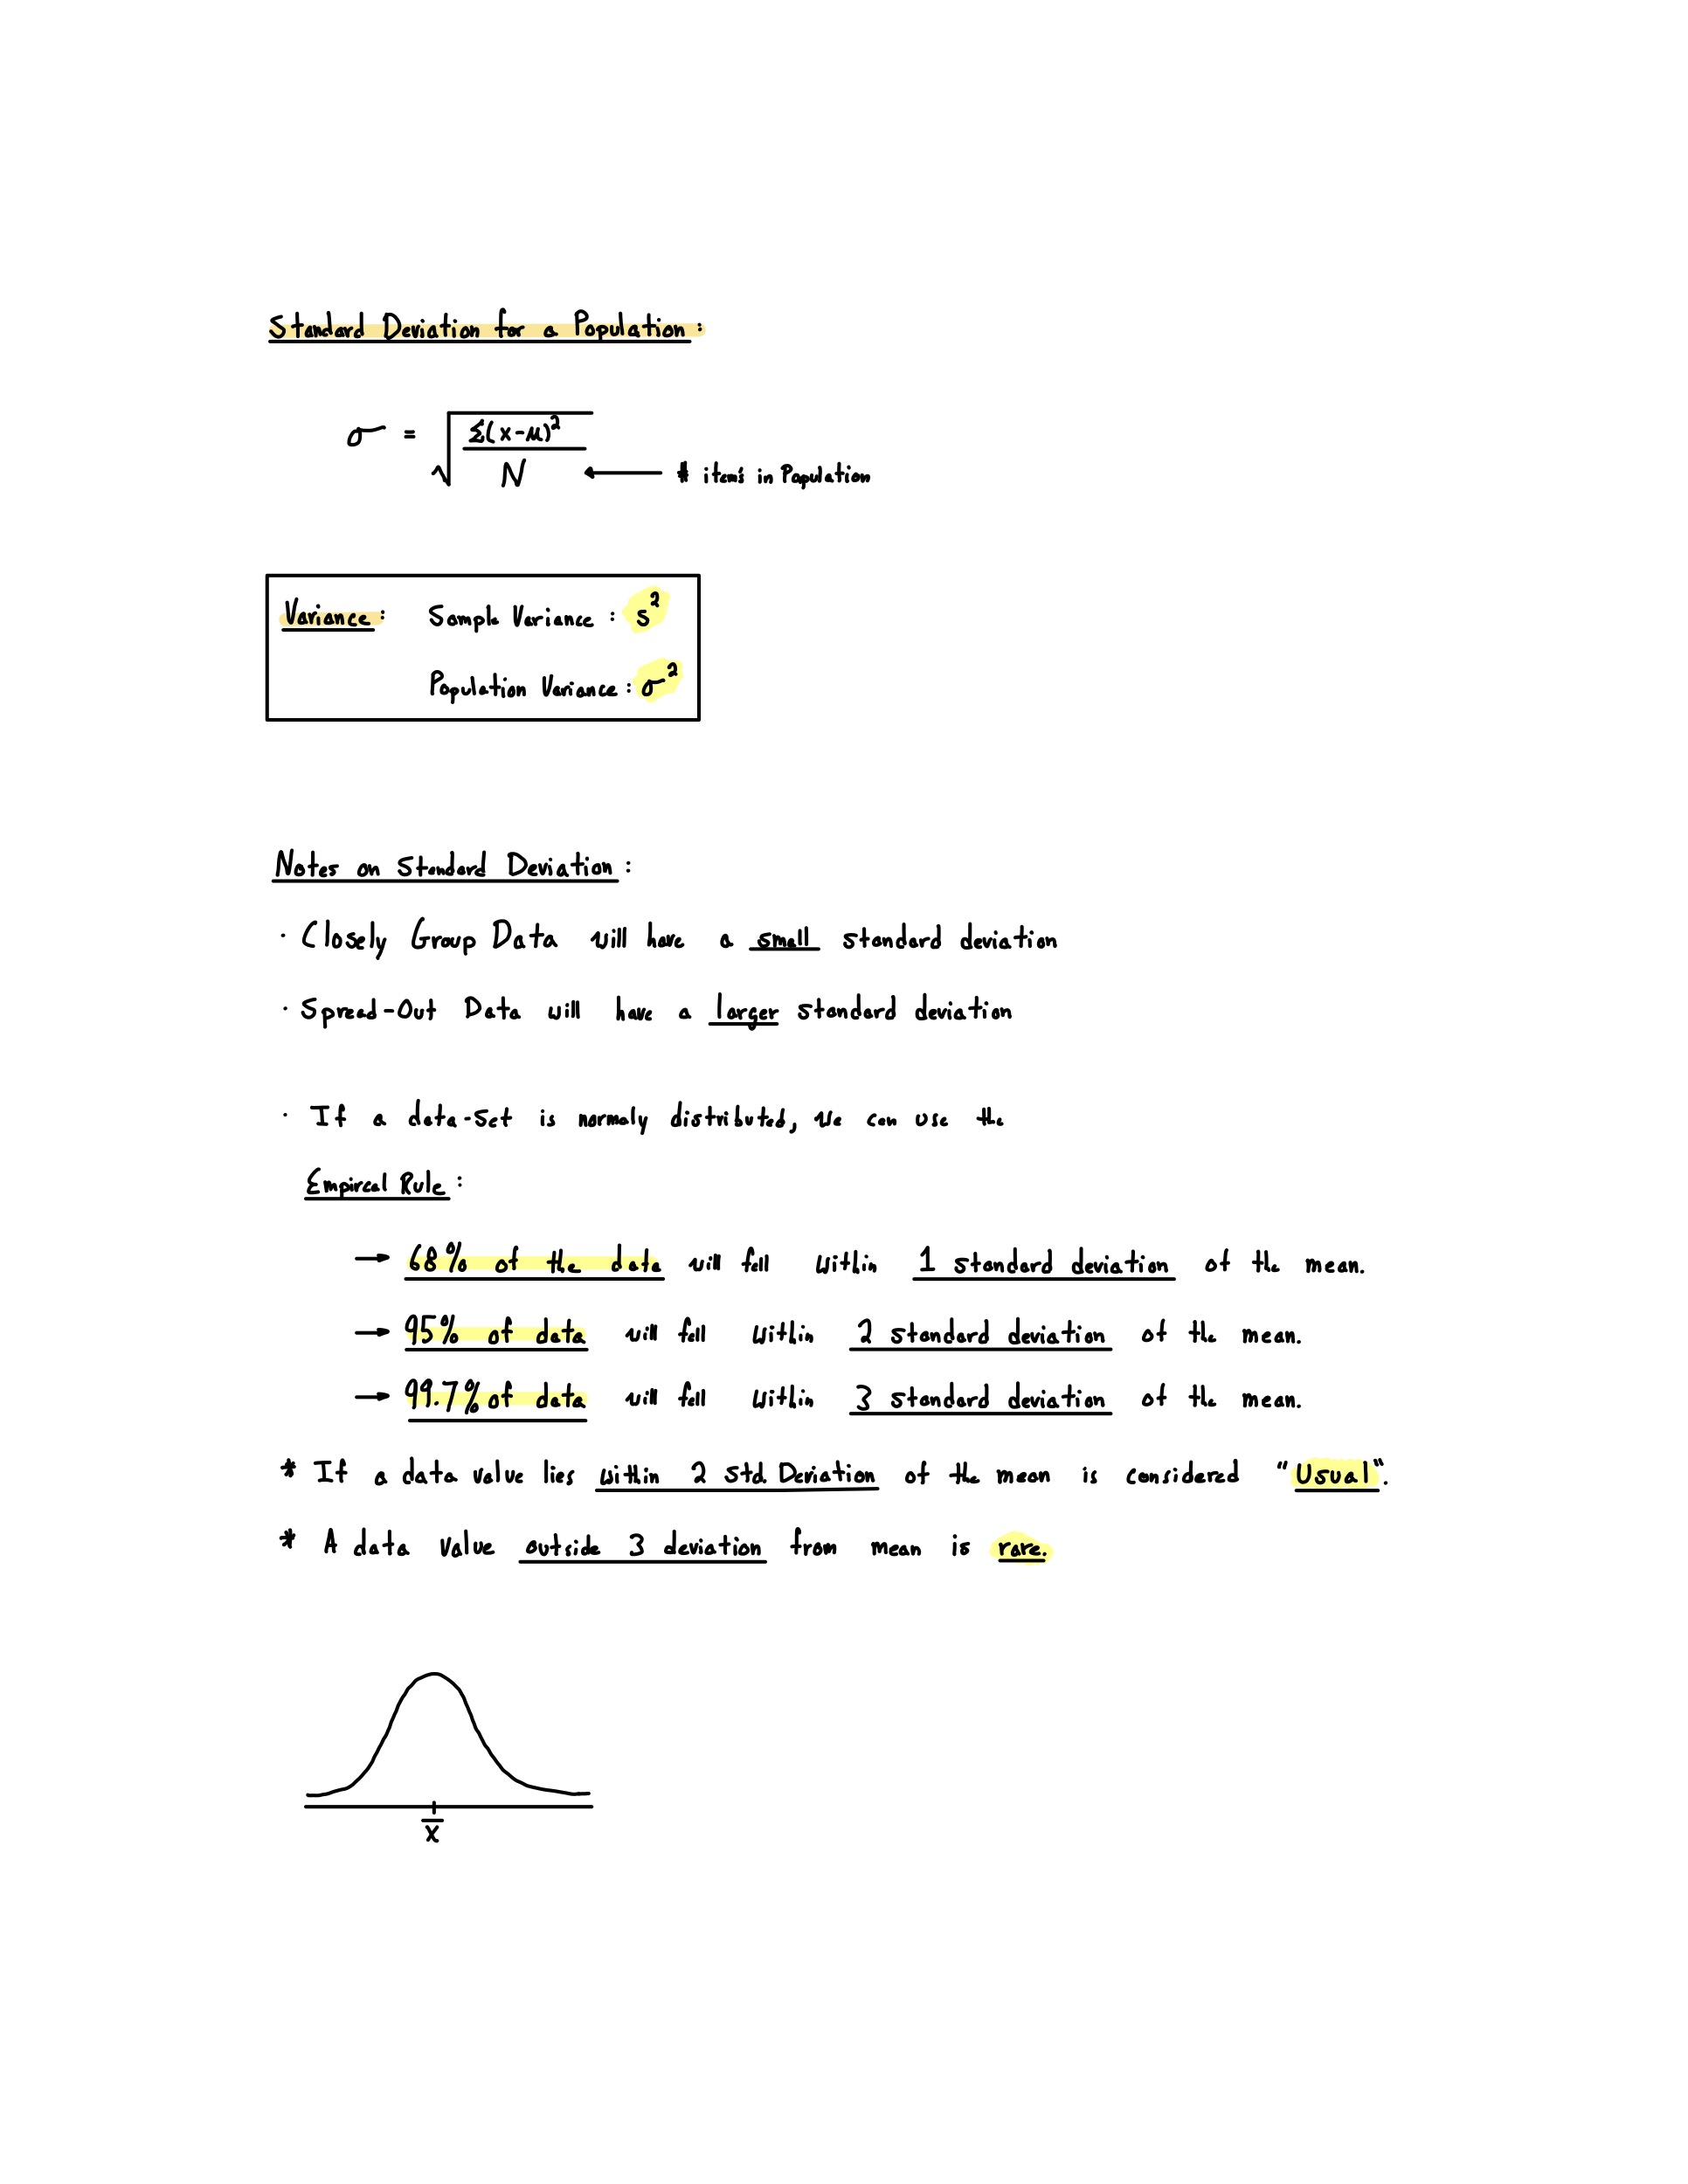 Standard Deviation for a Population :
σ = √(Σ(x-μ)² / N) ← # items in Population
Variance : Sample Variance : s²
Population Variance : σ²
Notes on Standard Deviation :
· Closely Group Data will have a small standard deviation
· Spread-Out Data will have a larger standard deviation
· If a data-set is normaly distributed, we can use the
Empircal Rule :
→ 68% of the data will fall within 1 standard deviation of the mean.
→ 95% of data will fall within 2 standard deviation of the mean.
→ 99.7% of data will fall within 3 standard deviation of the mean.
* If a data value lies within 2 std. Deviation of the mean is considered "Usual".
* A data value outside 3 deviation from mean is rare.
x̄